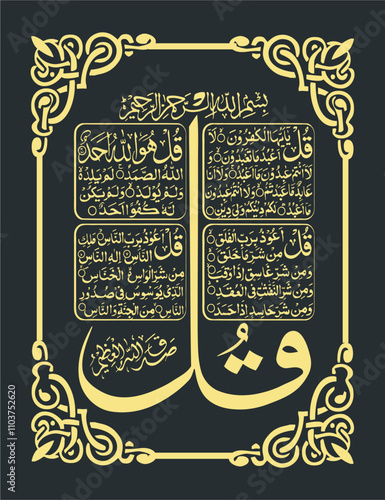 بسم الله الرحمن الرحيم
قل يايها الكفرون لا
اعبد ما تعبدون و
لا انتم عبدون ما اعبد ولا انا
عابد ما عبدتم ولا انتم عبدون
ما اعبد لكم دينكم ولي دين
قل هو الله احد
الله الصمد لم يلد
ولم يولد ولم يكن
له كفوا احد
قل اعوذ برب الفلق
من شر ما خلق
ومن شر غاسق اذا وقب
ومن شر النفثت في العقد
ومن شر حاسد اذا حسد
قل اعوذ برب الناس ملك
الناس اله الناس
من شر الوسواس الخناس
الذي يوسوس في صدور
الناس من الجنة والناس
قل
صدق الله العظيم
Adobe Stock | #1103752620